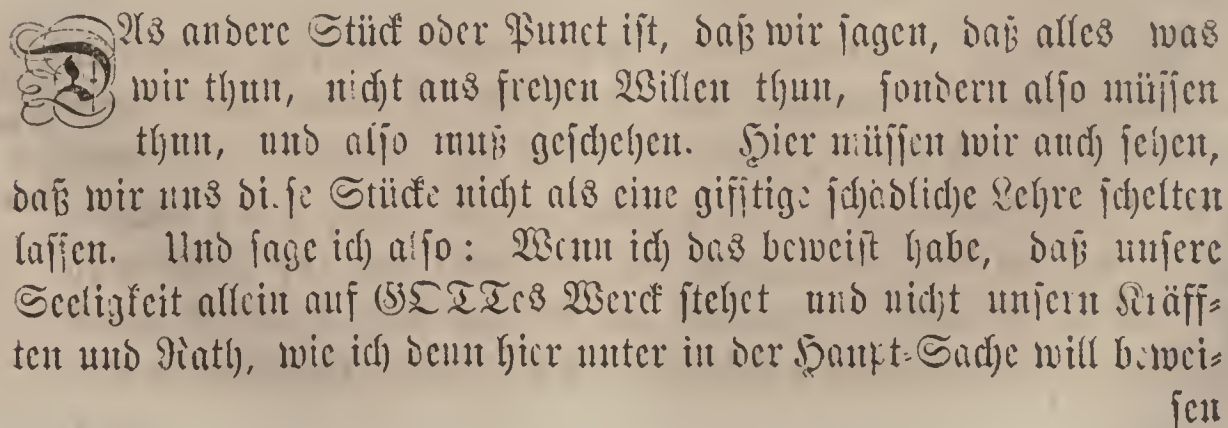 DAs andere Stück oder Punct ist, daß wir sagen, daß alles was
wir thun, nicht aus freyen Willen thun, sondern also müssen
thun, und also muß geschehen. Hier müssen wir auch sehen,
daß wir uns diese Stücke nicht als eine gifftige schädliche Lehre schelten
lassen. Und sage ich also: Wenn ich das beweist habe, daß unsere
Seeligkeit allein auf GOTTes Werck stehet und nicht unsern Kräff-
ten und Rath, wie ich denn hier unter in der Haupt-Sache will bewei-
sen